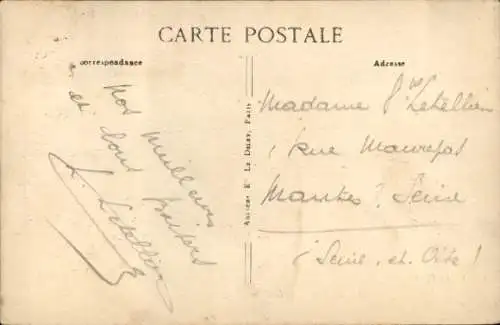 CARTE POSTALE
Correspondance
Adresse
Nos meilleurs
et doux Baisers
L. Letellier
Anciens Et Le Deley, Paris
Madame Vve Letellier
rue Maurepas
Mantes s/ Seine
(Seine et Oise)